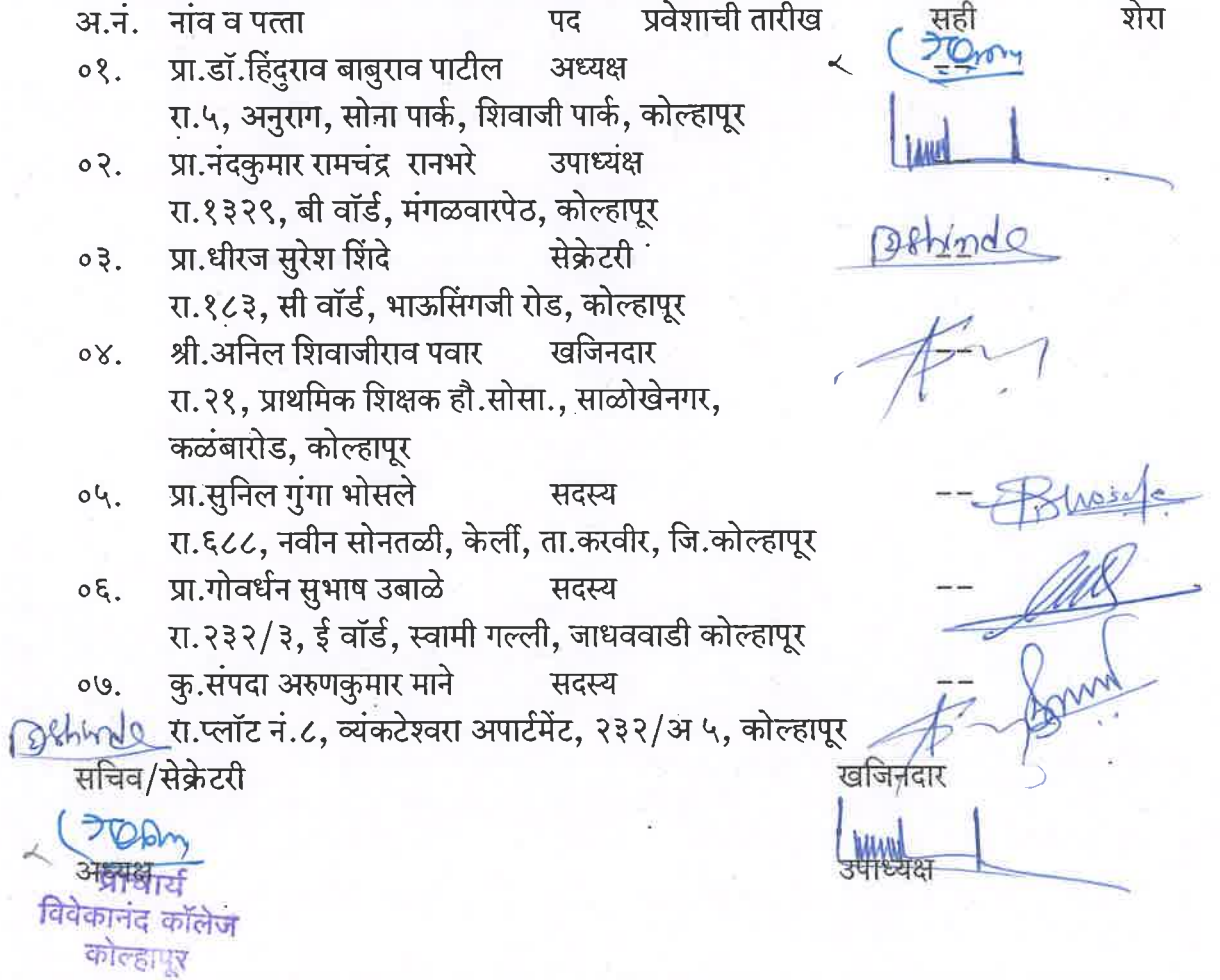 अ.नं. नांव व पत्ता पद प्रवेशाची तारीख सही शेरा
०१. प्रा.डॉ.हिंदुराव बाबुराव पाटील अध्यक्ष --
रा.५, अनुराग, सोना पार्क, शिवाजी पार्क, कोल्हापूर
०२. प्रा.नंदकुमार रामचंद्र रानभरे उपाध्यंक्ष
रा.१३२९, बी वॉर्ड, मंगळवारपेठ, कोल्हापूर
०३. प्रा.धीरज सुरेश शिंदे सेक्रेटरी -- DShinde
रा.१८३, सी वॉर्ड, भाऊसिंगजी रोड, कोल्हापूर
०४. श्री.अनिल शिवाजीराव पवार खजिनदार --
रा.२१, प्राथमिक शिक्षक हौ.सोसा., साळोखेनगर,
कळंबारोड, कोल्हापूर
०५. प्रा.सुनिल गुंगा भोसले सदस्य -- Bhosale
रा.६८८, नवीन सोनतळी, केर्ली, ता.करवीर, जि.कोल्हापूर
०६. प्रा.गोवर्धन सुभाष उबाळे सदस्य --
रा.२३२/३, ई वॉर्ड, स्वामी गल्ली, जाधववाडी कोल्हापूर
०७. कु.संपदा अरुणकुमार माने सदस्य --
रा.प्लॉट नं.८, व्यंकटेश्वरा अपार्टमेंट, २३२/अ ५, कोल्हापूर
DShinde
सचिव/सेक्रेटरी खजिनदार
अध्यक्ष उपाध्यक्ष
प्राचार्य
विवेकानंद कॉलेज
कोल्हापूर